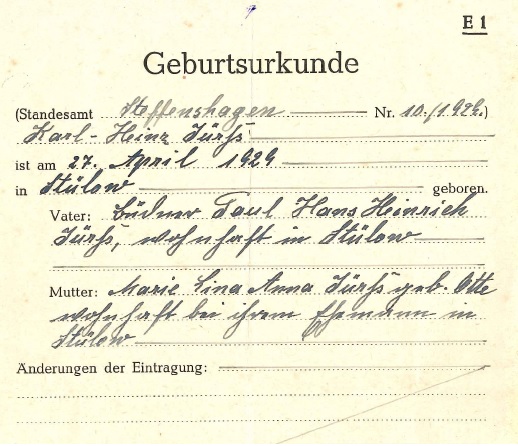 E 1
Geburtsurkunde
(Standesamt Steffenshagen Nr. 10./1929.)
Karl-Heinz Jürß
ist am 27. April 1929
in Stülow geboren.
Vater: Büdner Paul Hans Heinrich
Jürß, wohnhaft in Stülow
Mutter: Marie Lina Anna Jürß geb. Otte
wohnhaft bei ihrem Ehemann in
Stülow
Änderungen der Eintragung: